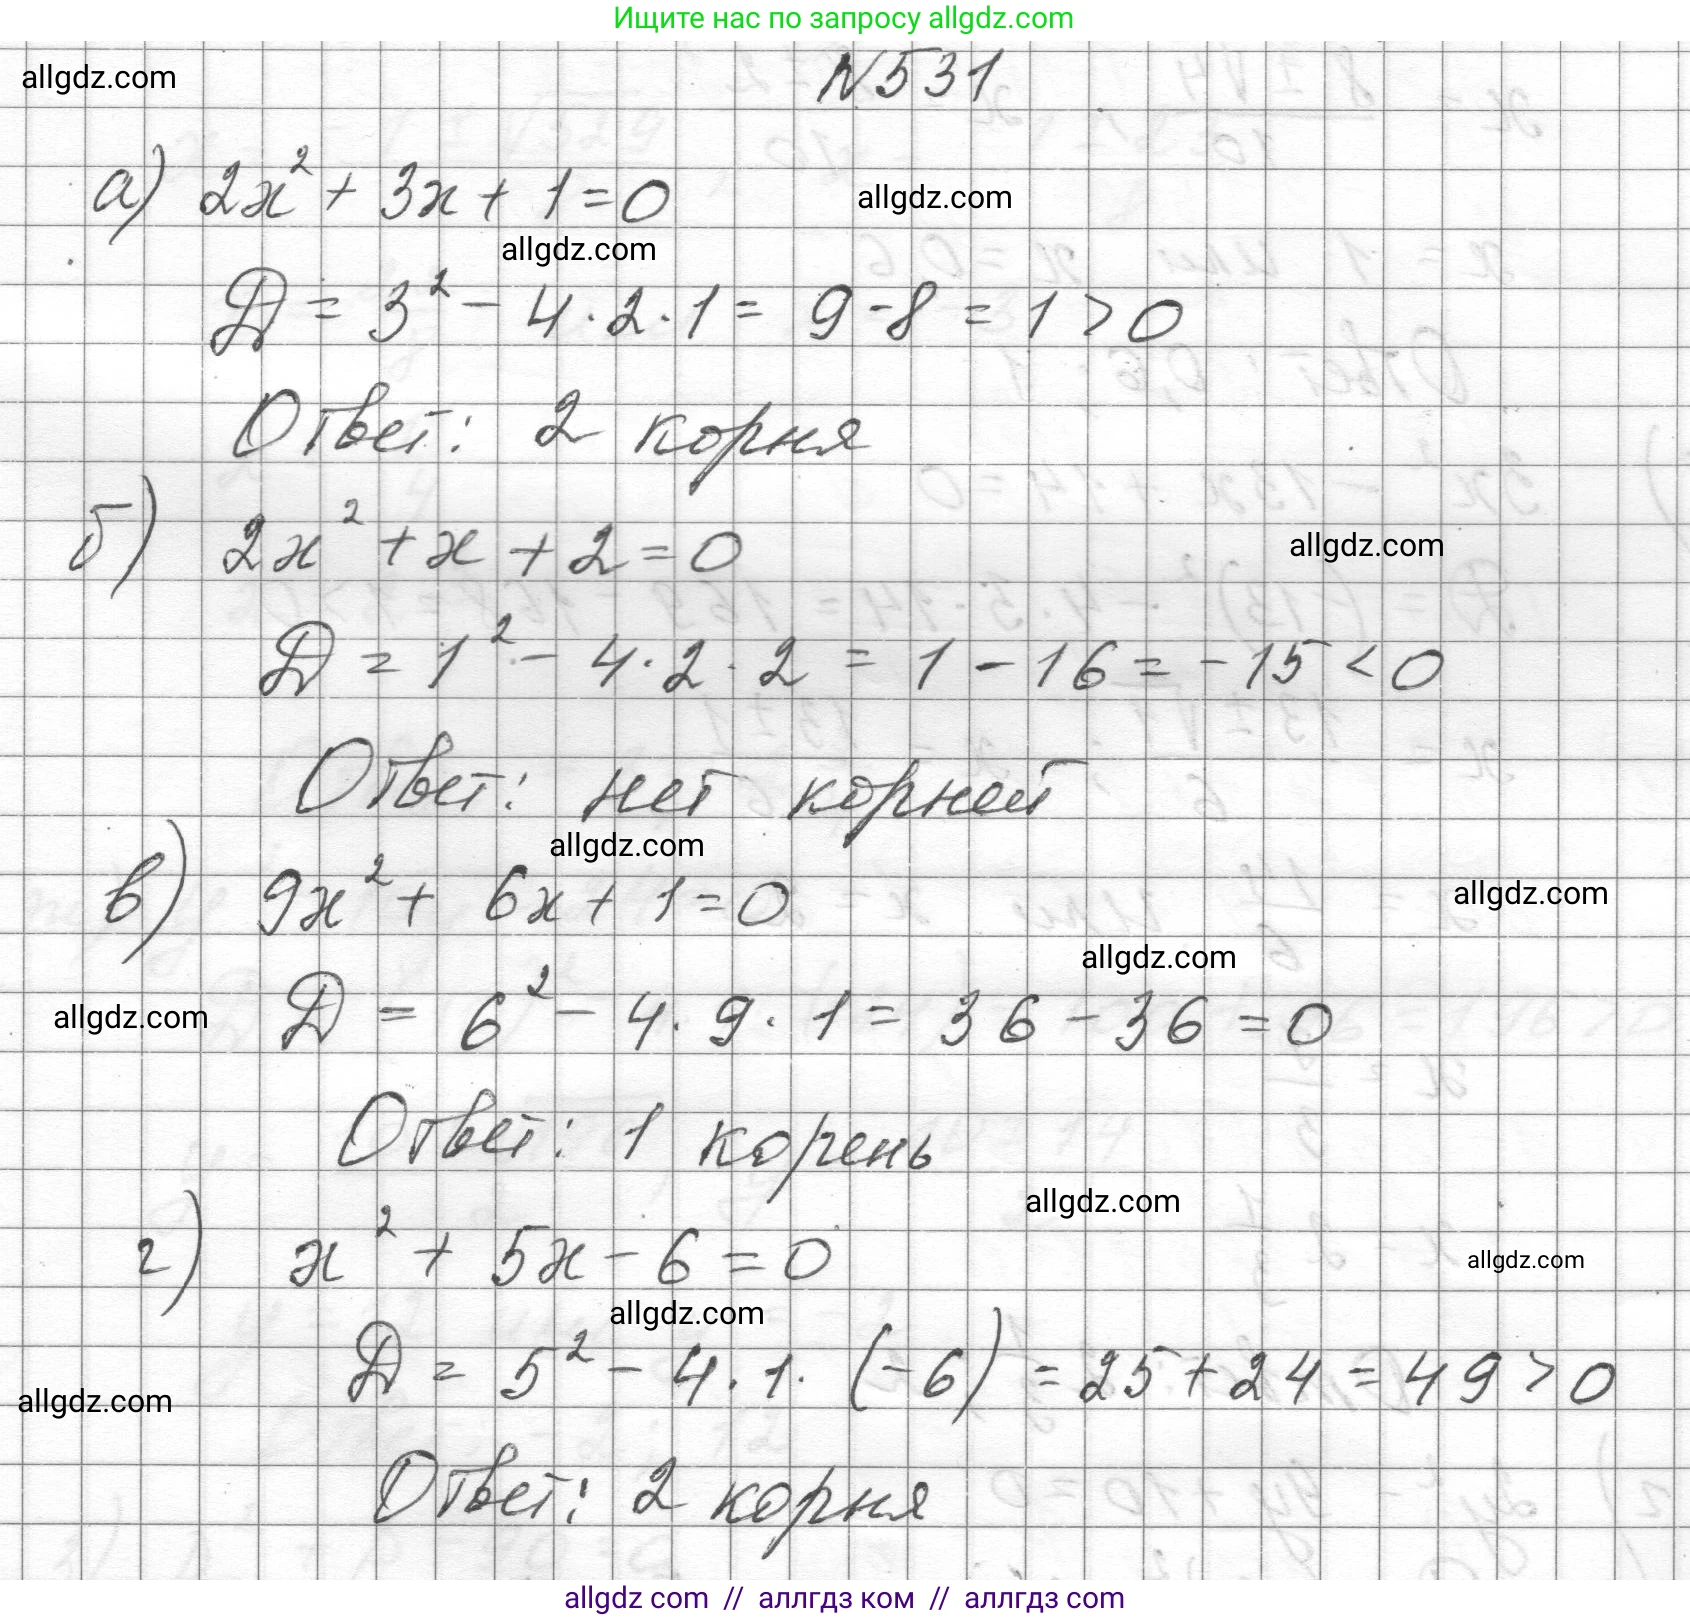 Ищите нас по запросу allgdz.com
allgdz.com
N531
а) 2x² + 3x + 1 = 0
allgdz.com
allgdz.com
Д = 3² - 4 · 2 · 1 = 9 - 8 = 1 > 0
Ответ: 2 корня
б) 2x² + x + 2 = 0
allgdz.com
Д = 1² - 4 · 2 · 2 = 1 - 16 = -15 < 0
Ответ: нет корней
allgdz.com
в) 9x² + 6x + 1 = 0
allgdz.com
allgdz.com
allgdz.com
Д = 6² - 4 · 9 · 1 = 36 - 36 = 0
Ответ: 1 корень
allgdz.com
г) x² + 5x - 6 = 0
allgdz.com
allgdz.com
Д = 5² - 4 · 1 · (-6) = 25 + 24 = 49 > 0
allgdz.com
Ответ: 2 корня
allgdz com // аллгдз ком // аллгдз com